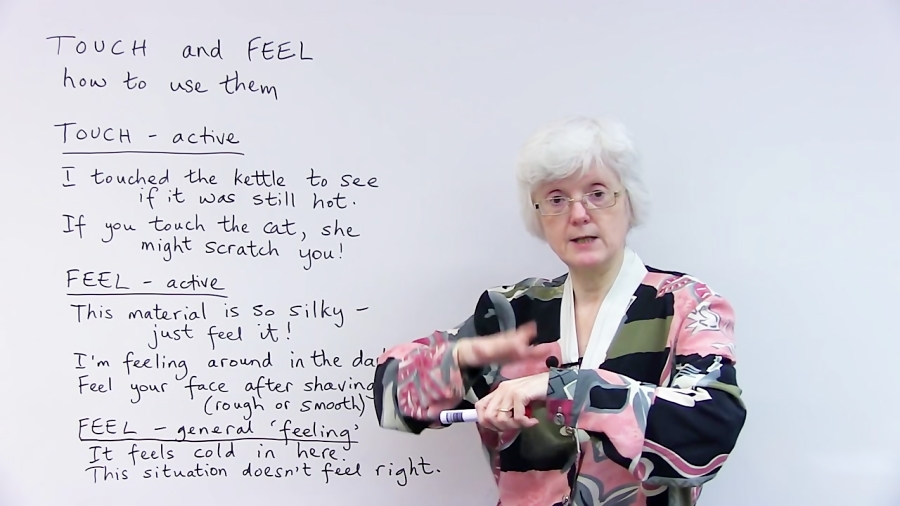 TOUCH and FEEL
how to use them
TOUCH - active
I touched the kettle to see
if it was still hot.
If you touch the cat, she
might scratch you!
FEEL - active
This material is so silky -
just feel it!
I'm feeling around in the
Feel your face after shaving
(rough or smooth)
FEEL - general 'feeling'
It feels cold in here.
This situation doesn't feel right.